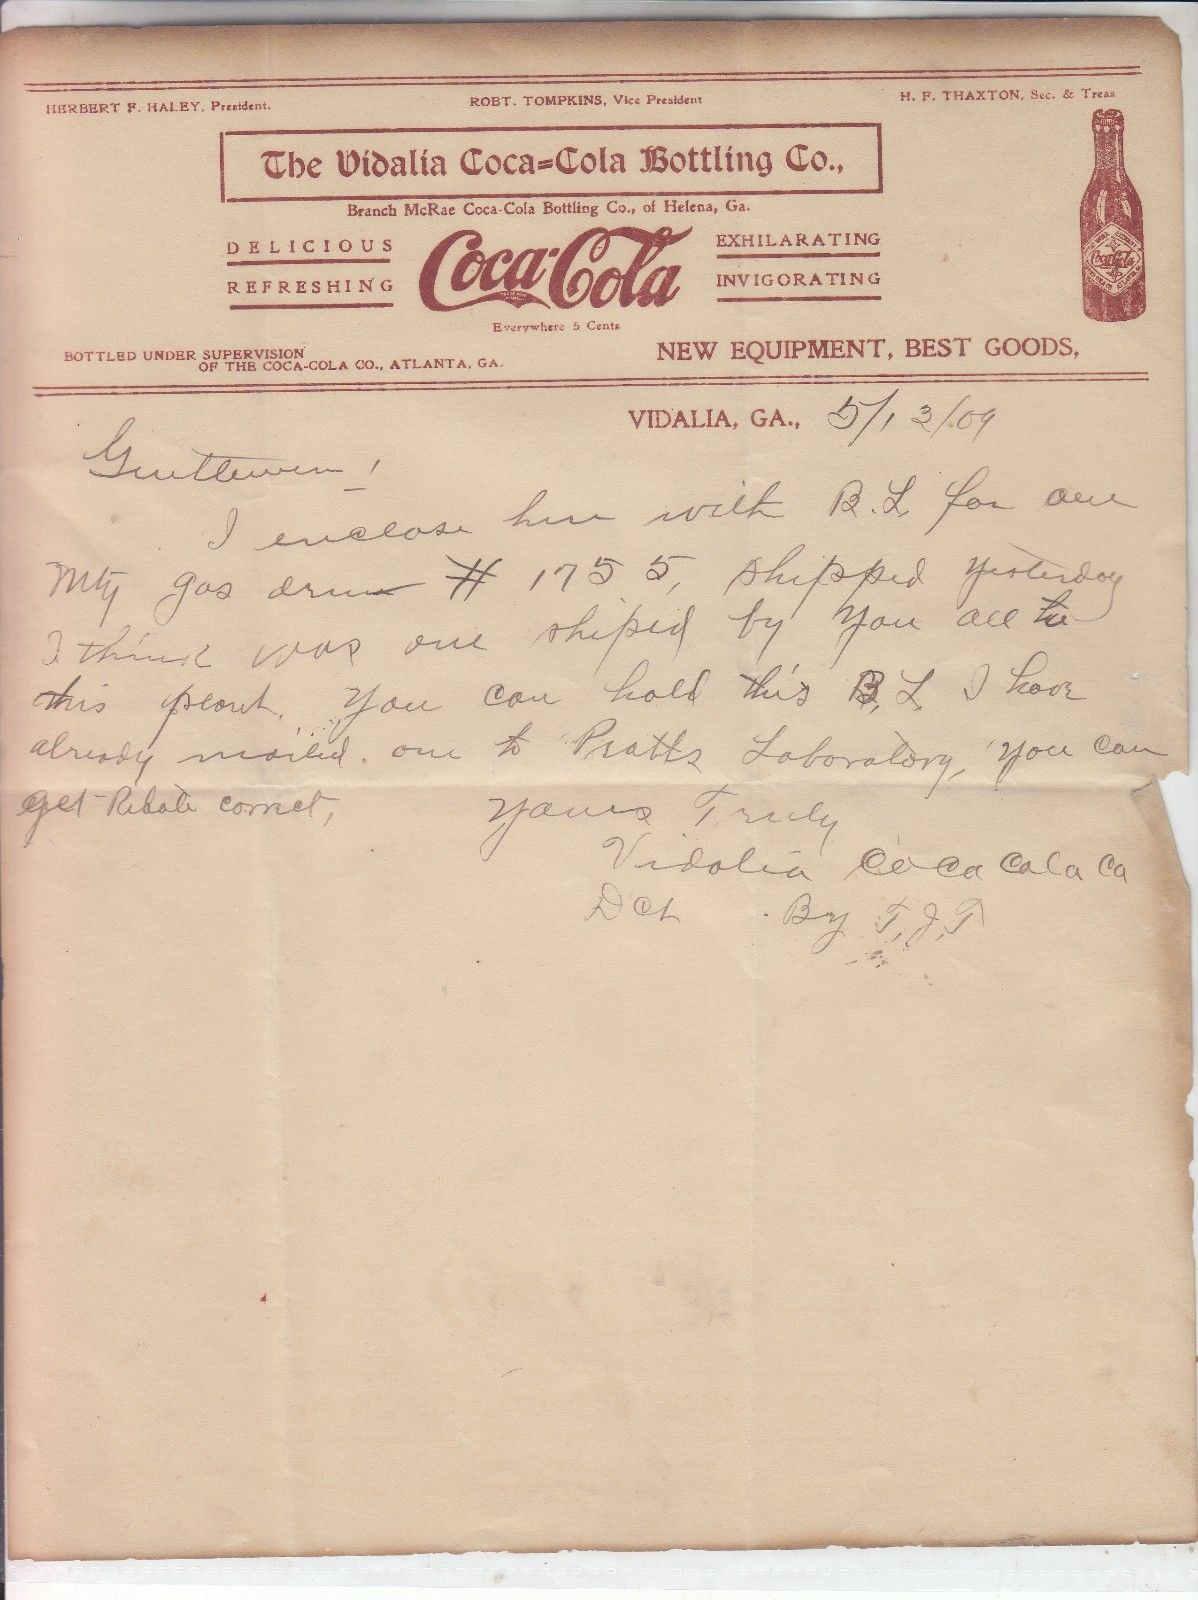 HERBERT F. HALEY, President.
ROBT. TOMPKINS, Vice President
H. F. THAXTON, Sec. & Treas
The Vidalia Coca=Cola Bottling Co.,
Branch McRae Coca-Cola Bottling Co., of Helena, Ga.
DELICIOUS
REFRESHING
Coca-Cola
EXHILARATING
INVIGORATING
Everywhere 5 Cents
Coca-Cola
BOTTLED UNDER SUPERVISION
OF THE COCA-COLA CO., ATLANTA, GA.
NEW EQUIPMENT, BEST GOODS,
VIDALIA, GA., 5/13/09
Gentlemen!
I enclose here with B.L. for one
Mty gas drum # 1755, shipped yesterday
I think was one shiped by you all to
this plant. You can hold this B.L. I have
already mailed one to Pratts Laboratory, you can
get Rebate correct,
Yours Truly
Vidalia Coca Cola Co
By T.J.T